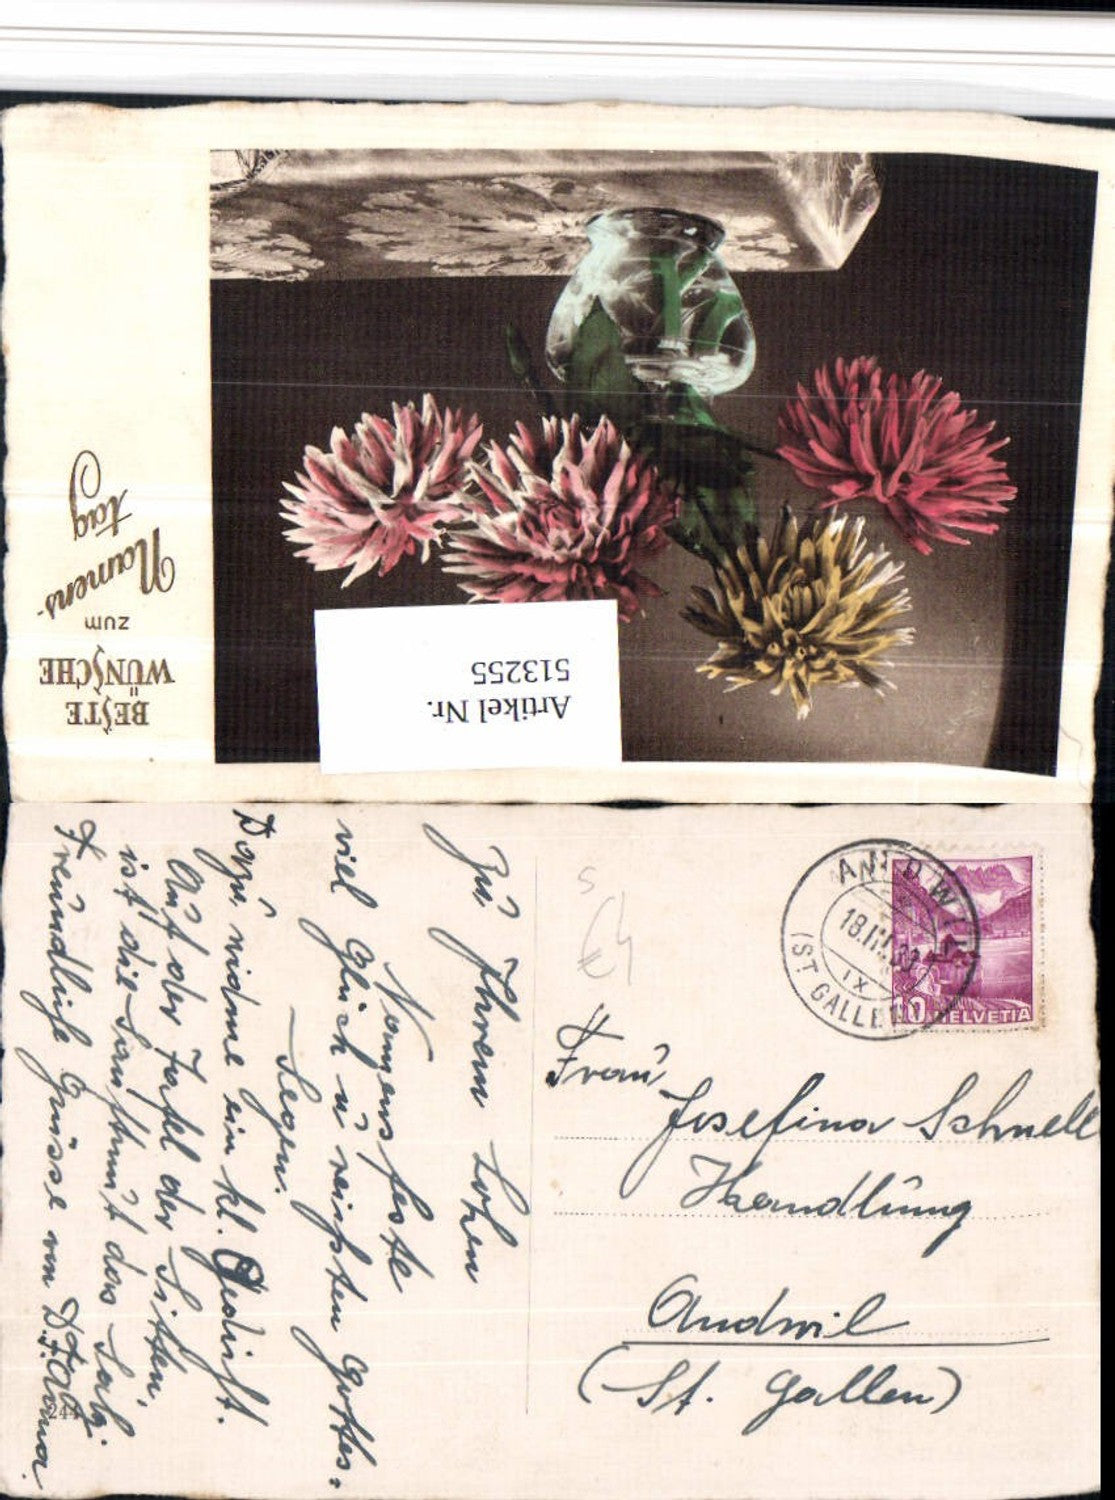 BESTE
WÜNSCHE
ZUM
Namens-
tag
Artikel Nr.
513255
Zu Ihrem Hohen
Namensfeste
viel Glück u. reichsten Gottes-
Segen.
Dazu widme ein kl. Gedicht.
Auf der Tafel der Sitten,
ist die Sanftmut das Salz
Freundliche Grüsse von
244
ANDWIL
18.III.
IX
(ST. GALLEN)
10 HELVETIA
5
€4
Frau
Josefina Schnell
Handlung
Andwil
(St. Gallen)